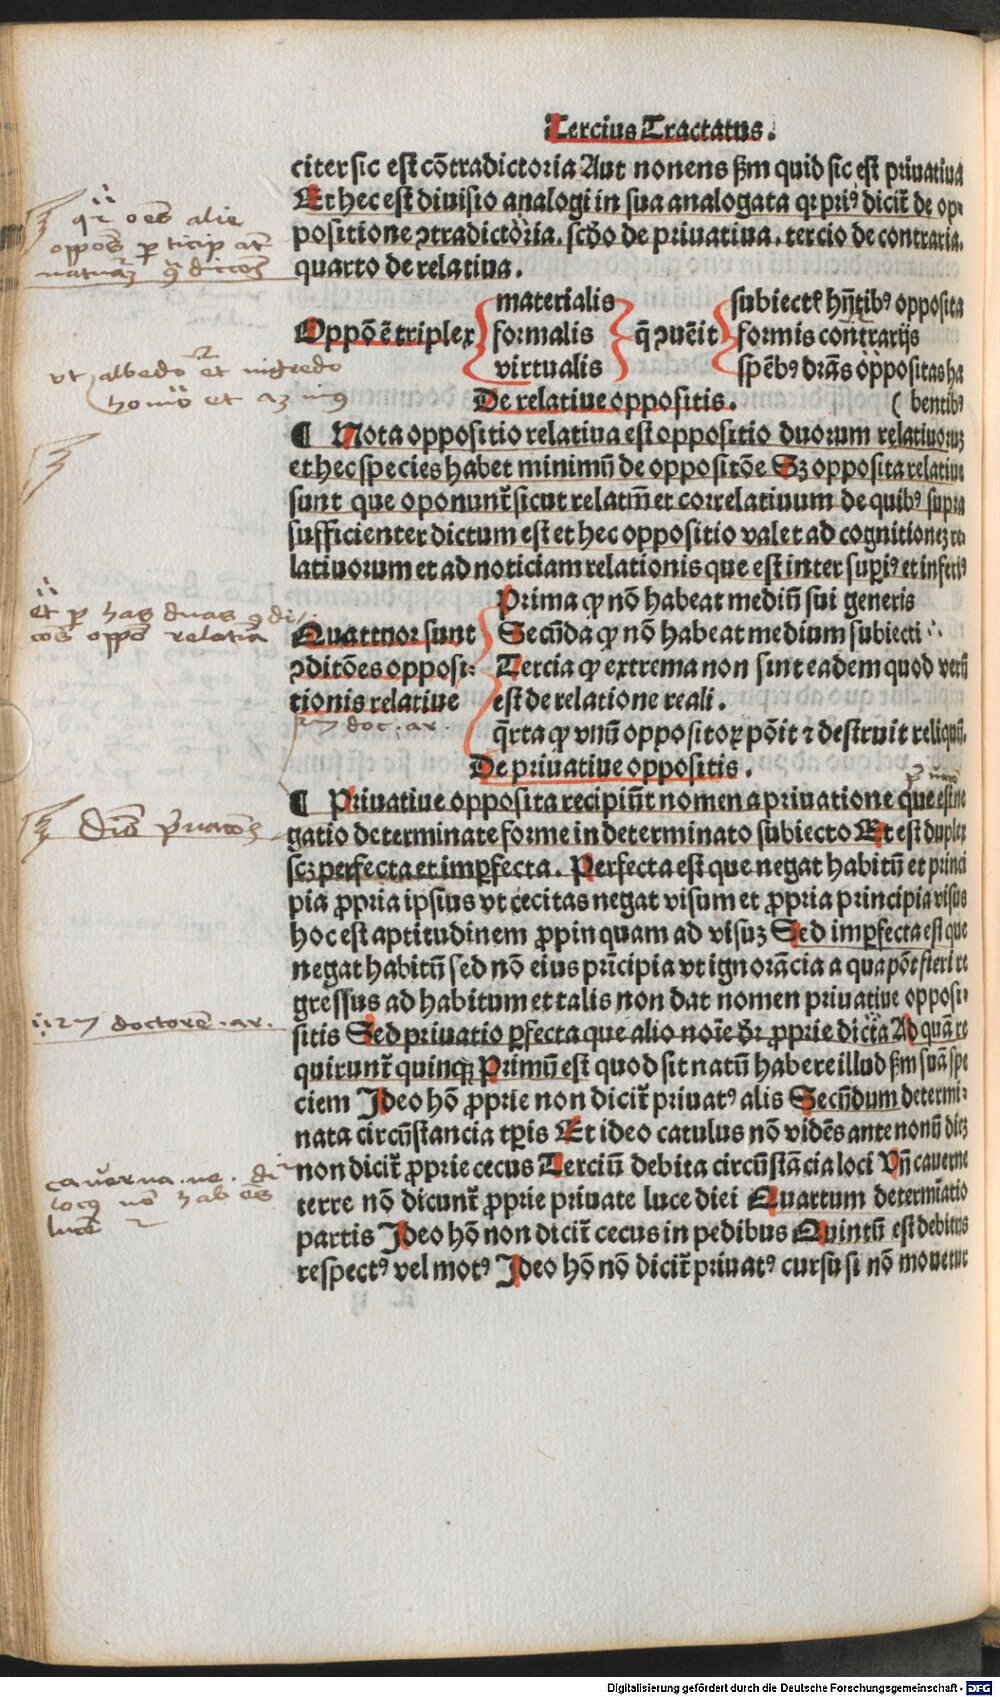 Tercius Tractatus.
citer sic est cõtradictoria Aut non ens ẜm quid sic est priuatiua
Et hec est diuisio analogi in sua analogata qꝛ priꝰ dicit̃ de op-
positione ꝯtradictoria. scḋo de priuatiua. tercio de contraria.
quarto de relatiua.
Oppõ ẽ triplex
materialis
formalis
virtualis
q̃ ꝯuẽit
subiectꝭ hñtibꝰ opposita
formis contrarijs
spẽbꝰ dr̃as oppositas ha
( bentibꝰ
De relatiue oppositis.
¶ Nota oppositio relatiua est oppositio duorum relatiuoruꝫ
et hec species habet minimũ de oppositõe Sꝫ opposita relatiue
sunt que oponunt̃ sicut relatiũ et correlatiuum de quibꝰ supra
sufficienter dictum est et hec oppositio valet ad cognitioneꝫ re-
latiuorum et ad noticiam relationis que est inter sup̱iꝰ et inferiꝰ
Quattuor sunt
ꝯditões opposi:
tionis relatiue
Prima ꝙ nõ habeat mediũ sui generis
Secũda ꝙ nõ habeat medium subiecti
Tercia ꝙ extrema non sint eadem quod verũ
est de relatione reali.
q̃rta ꝙ vnũ oppositoꝝ põit ⁊ destruit reliquũ.
De priuatiue oppositis.
¶ Priuatiue opposita recipiũt nomen a priuatione que est ne
gatio determinate forme in determinato subiecto Et est duplex
scꝫ perfecta et imꝑfecta. Perfecta est que negat habitũ et princi
pia ꝓpria ipsius vt cecitas negat visum et ꝓpria principia visus
hoc est aptitudinem ꝓpinquam ad visuꝫ Sed imꝑfecta est que
negat habitũ sed nõ eius pricipia vt ignorãcia a qua põt fieri re
gressus ad habitum et talis non dat nomen priuatiue opposi:
sitis Sed priuatio ꝑfecta que alio noĩe dr̃ ꝓprie dicta Ad quã re
quirunt̃ quinqꝫ Primũ est quod sit natũ habere illud ẜm suã spe
ciem Ideo hõ ꝓprie non dicit̃ priuatꝰ alis Secũdum determi:
nata circũstancia tꝑis Et ideo catulus nõ vidẽs ante nonũ dieꝫ
non dicit̃ ꝓprie cecus Terciũ debita circũstãcia loci Vñ cauerne
terre nõ dicunt̃ ꝓprie priuate luce diei Quartum determiatio
partis Ideo hõ non dicit̃ cecus in pedibus Quintũ est debitus
respectꝰ vel motꝰ Ideo hõ nõ dicit̃ priuatꝰ cursu si nõ mouetur
qꝛ oẽs alie
ut albedo et nigredo
homo et
et ꝑ has duas
doc. ar.
doctorẽ .ar.
cauerna
nõ habẽs
lucẽ
Digitalisierung gefördert durch die Deutsche Forschungsgemeinschaft - DFG